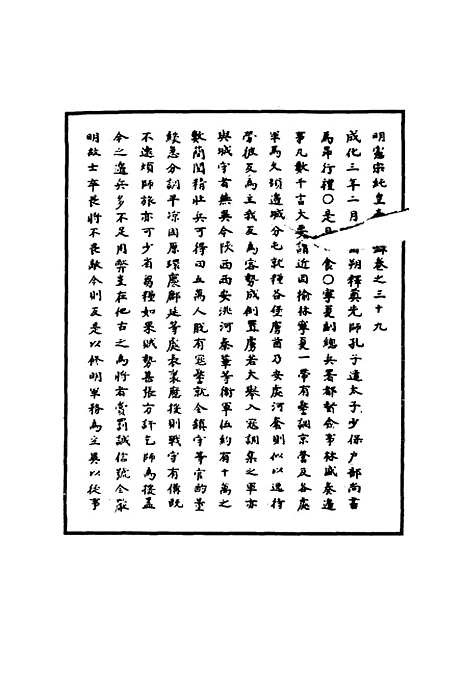 明憲宗純皇 錄卷之三十九
成化三年二月 朔釋奠先師孔子遣太子少保戶部尚書
馬昂行禮○是日 食○寧夏副總兵署都督僉事林盛奏邊
事凡數千言大要謂近因榆林寧夏一帶有警調京營及各處
軍馬久頓邊城分屯就糧各堡虜酋乃安處河套則似以逸待
勞彼反為主我反為客勢成倒置虜若大舉入寇調集之軍亦
與城守者無異令陝西西安洮河秦鞏等衛軍伍約有十萬之
數簡閱精壯兵可得四五萬人脫有寇警就令鎮守等官酌量
緩急分調平涼固原環慶鄜延等處表裏應援則戰守有備既
不遠煩師旅亦可少省芻糧如果賊勢甚張方許乞師為援且
今之邊兵多不足用弊在他古之為將者賞罰誠信號令嚴
明故士卒畏將不畏敵今則反是以休明軍務為主與以從事